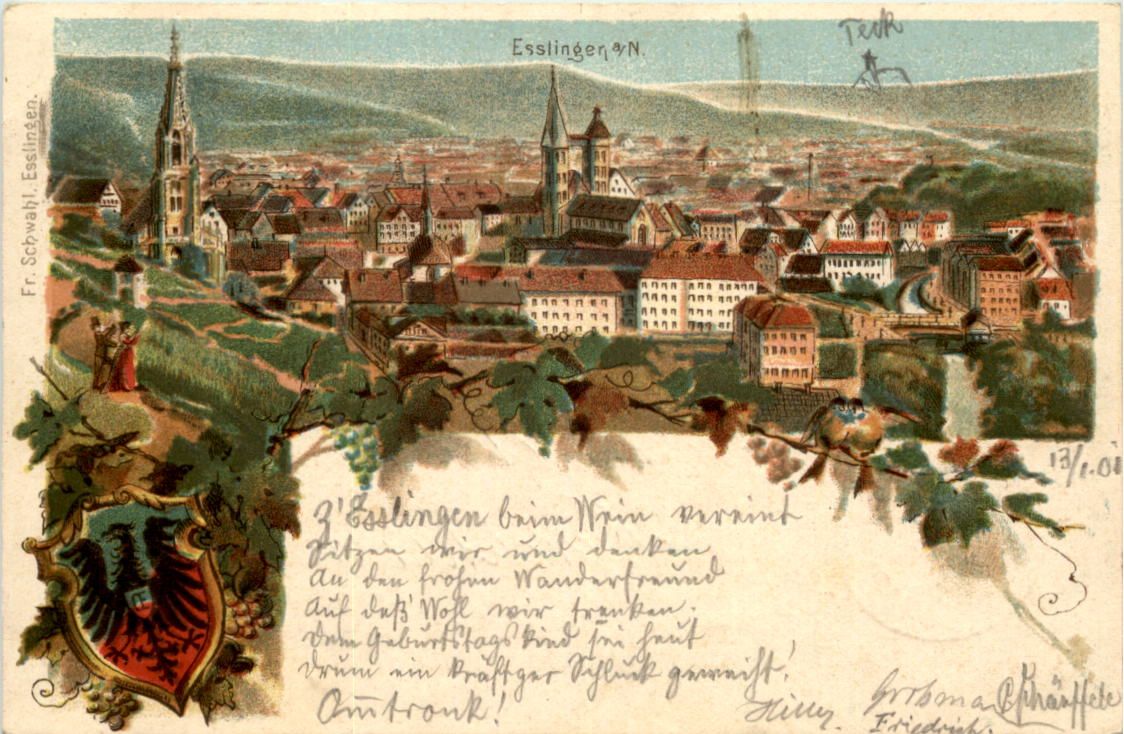 Teck
Esslingen a/N.
Fr. Schwahl. Esslingen.
13/1.01
Z' Esslingen beim Wein vereint
Sitzen wir und denken
An den frohen Wanderfreund
Auf deß' Wohl wir trenken.
Dem Geburtstagskind sei heut
Drum ein kräftger Schluck geweiht!
Omtronk!
Friedrich.